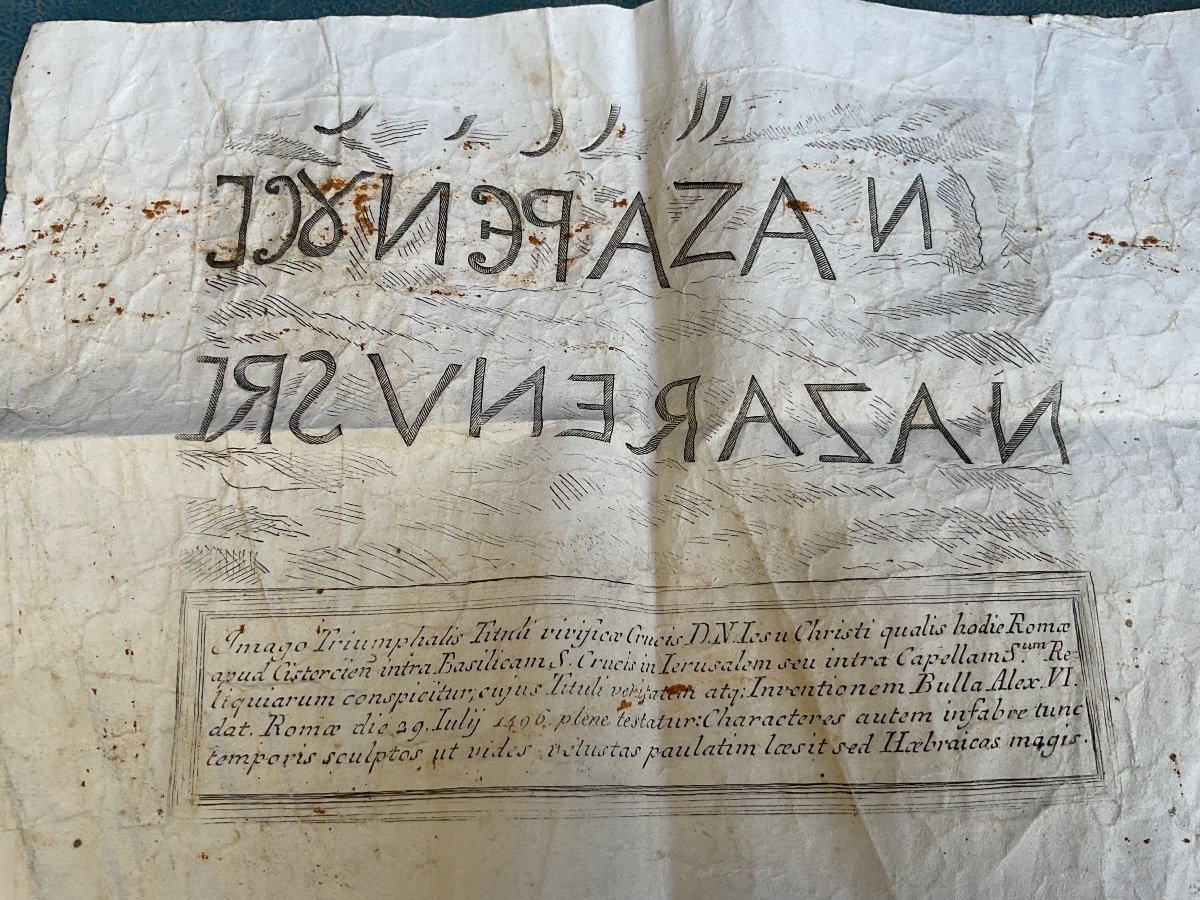 N AZAPЄNȣCI
NAZARENVSRE
Imago Triumphalis Tituli vivificæ Crucis D.N.Iesu Christi qualis hodie Romæ
apud Cistercien̄ intra Basilicam S. Crucis in Ierusalem seu intra Capellam S.um Re-
liquiarum conspicitur, cujus Tituli veritatem atq; Inventionem Bulla Alex. VI.
dat. Romæ die 29. Iulij 1496. plene testatur: Characteres autem infabre tunc
temporis sculptos ut vides vetustas paulatim læsit sed Hæbraicas magis.